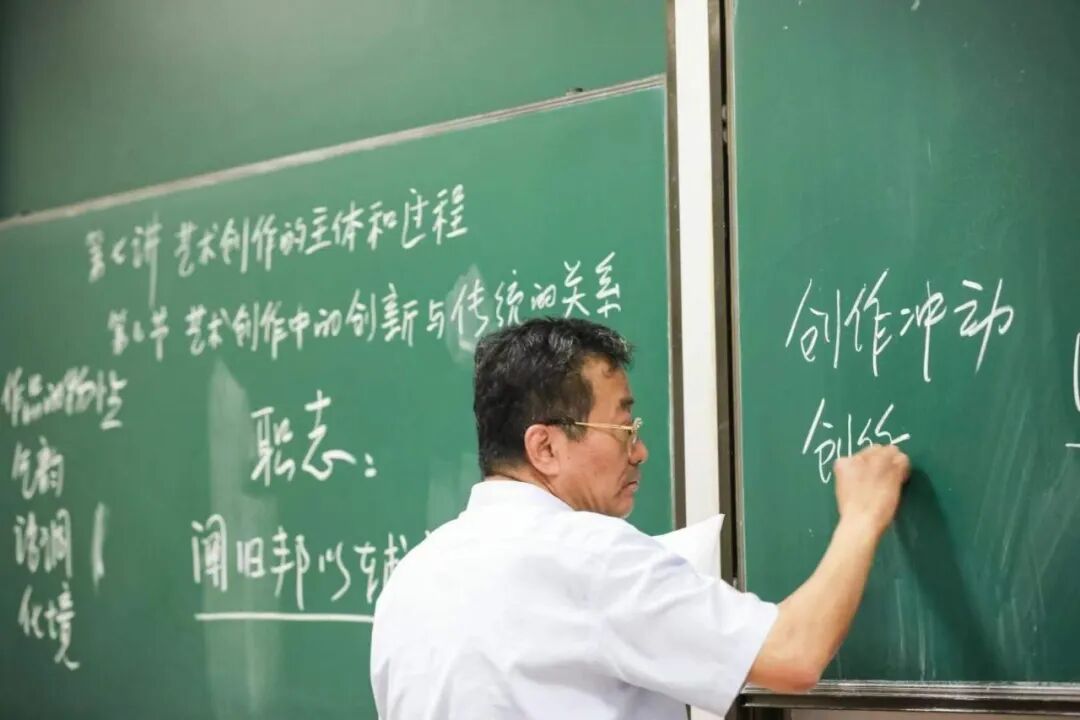 第七讲 艺术创作的主体和过程
第 节 艺术创作中的创新与传统的关系
作品的物性
气韵
格调
化境
职志：
阐旧邦以辅
创作冲动
创